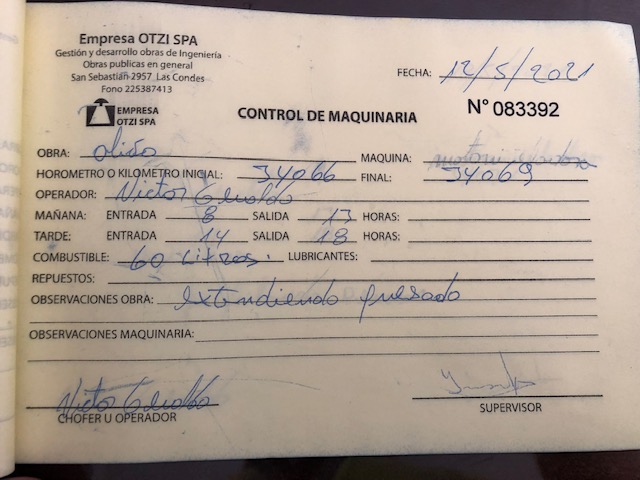 Empresa OTZI SPA
Gestión y desarrollo obras de Ingeniería
Obras publicas en general
San Sebastián 2957 Las Condes
Fono 225387413
EMPRESA
OTZI SPA
FECHA: 12/5/2021
CONTROL DE MAQUINARIA
N° 083392
OBRA: MAQUINA:
HOROMETRO O KILOMETRO INICIAL: 34066 FINAL: 34069
OPERADOR: Victor
MAÑANA: ENTRADA 8 SALIDA 13 HORAS:
TARDE: ENTRADA 14 SALIDA 18 HORAS:
COMBUSTIBLE: 60 Litros. LUBRICANTES:
REPUESTOS:
OBSERVACIONES OBRA: extendiendo
OBSERVACIONES MAQUINARIA:
Victor
CHOFER U OPERADOR
SUPERVISOR